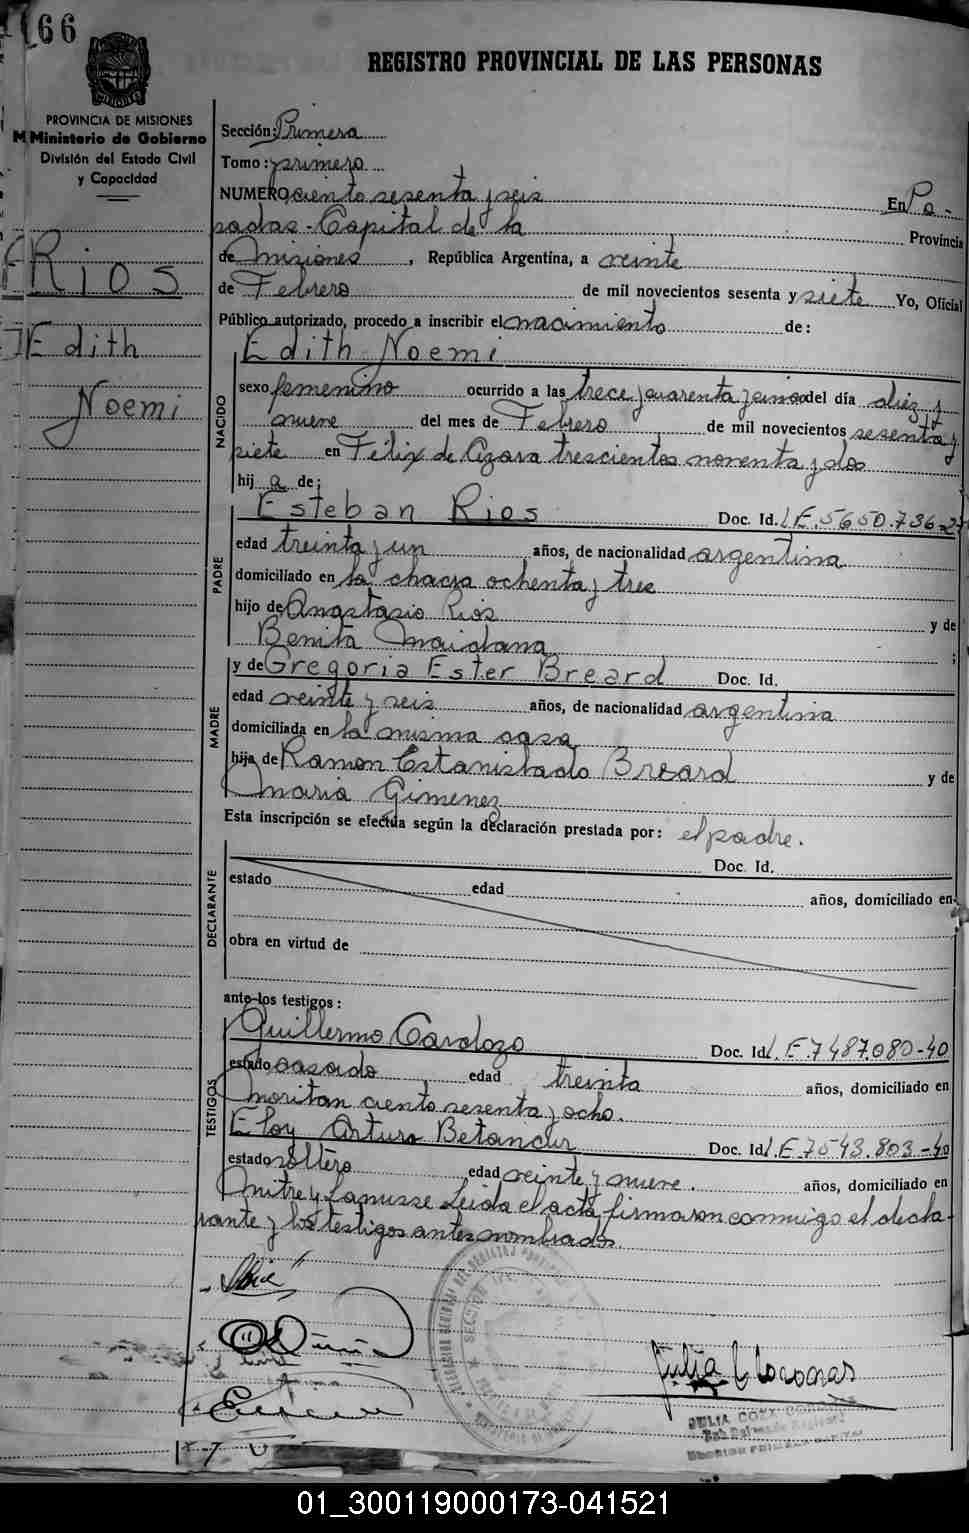 166
REGISTRO PROVINCIAL DE LAS PERSONAS
PROVINCIA DE MISIONES
Ministerio de Gobierno
División del Estado Civil
y Capacidad
Rios
Edith
Noemi
Sección: Primera
Tomo: primero
NUMERO ciento sesenta y seis En Po-
sadas - Capital de la Provincia
de Misiones, República Argentina, a veinte
de Febrero de mil novecientos sesenta y siete Yo, Oficial
Público autorizado, procedo a inscribir el nacimiento de:
Edith Noemi
NACIDO
sexo femenino ocurrido a las trece y cuarenta y cinco del día diez y
nueve del mes de Febrero de mil novecientos sesenta y
siete en Félix de Azara trescientos noventa y dos
hij a de;
PADRE
Esteban Rios Doc. Id. L.E. 5650.736
edad treinta y un años, de nacionalidad argentina
domiciliado en la chacra ochenta y tres
hijo de Anastasio Rios y de
Benita Maidana ;
MADRE
y de Gregoria Ester Breard Doc. Id.
edad veinte y seis años, de nacionalidad argentina
domiciliada en la misma casa
hija de Ramon Estanislado Breard y de
Maria Gimenez
Esta inscripción se efectúa según la declaración prestada por: el padre.
DECLARANTE
Doc. Id.
estado edad años, domiciliado en
obra en virtud de
ante los testigos:
TESTIGOS
Guillermo Cardozo Doc. Id. L.E. 7487.080-40
estado casado edad treinta años, domiciliado en
Moritan ciento sesenta y ocho.
Eloy Arturo Betancur Doc. Id. L.E. 7543.803-40
estado soltero edad veinte y nueve. años, domiciliado en
Mitre y Lanusse Leida el acta, firmaron conmigo el decla-
rante y los testigos antes nombrados.
Julia C Coronas
JULIA COZY CORONAS
01_300119000173-041521